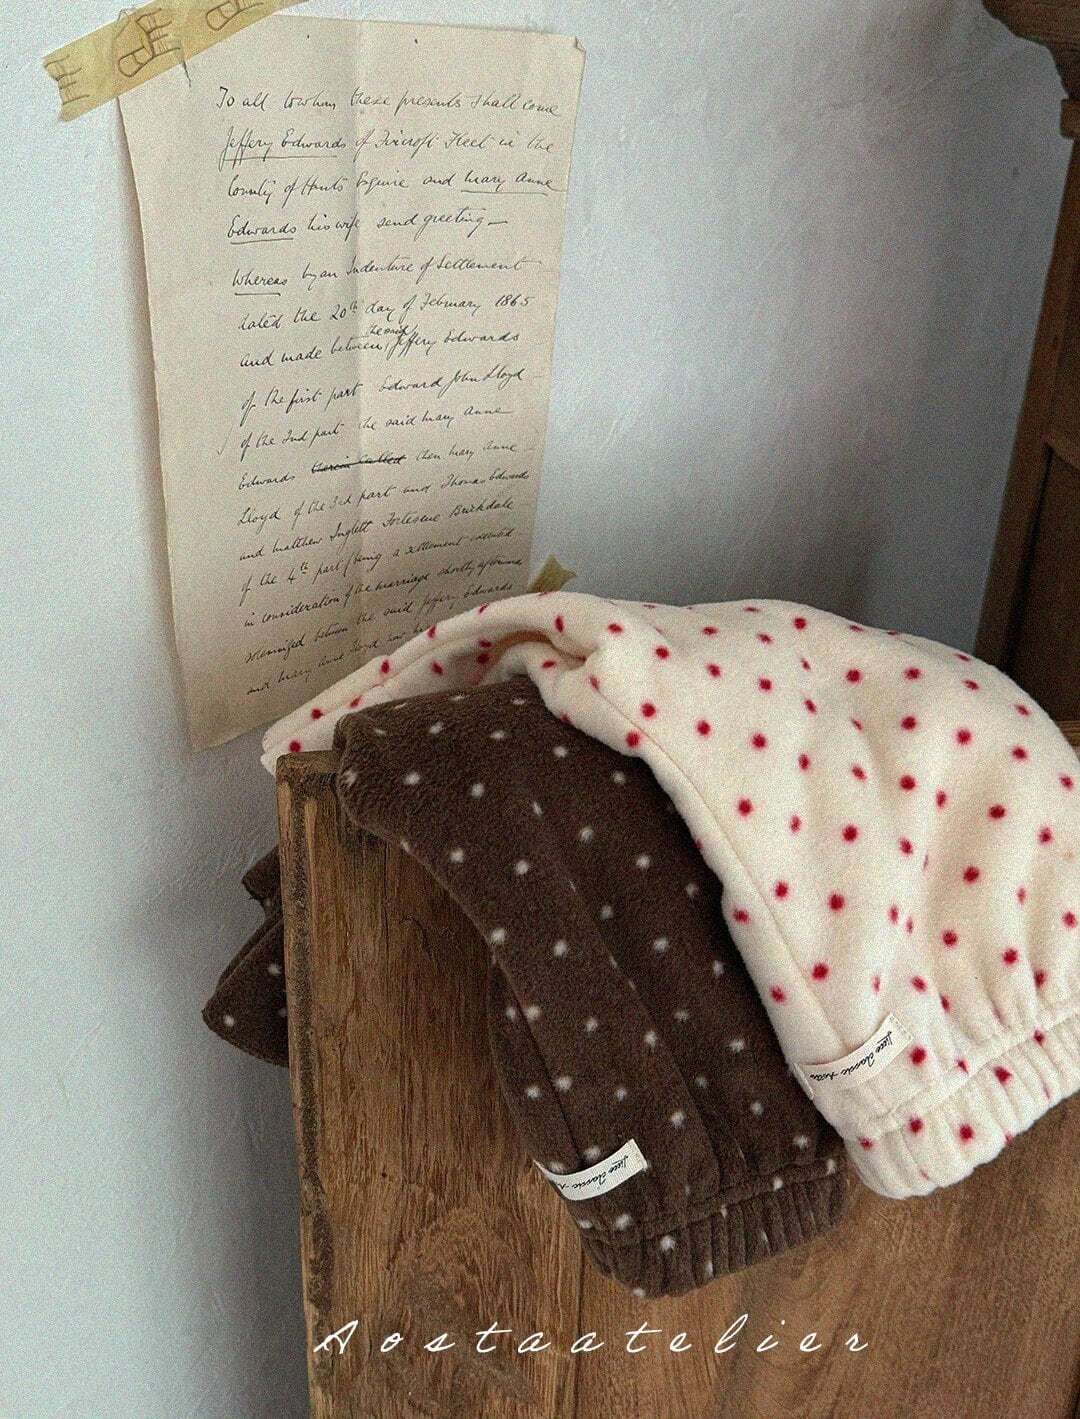 To all to whom these presents shall come
Jeffery Edwards of Fircroft Fleet in the
County of Hants Esquire and Mary Anne
Edwards his wife send greeting
Whereas by an Indenture of Settlement
dated the 20th day of February 1865
and made between the said Jeffery Edwards
of the first part Edward John Lloyd
of the 2nd part the said Mary Anne
Edwards then Mary Anne
Lloyd of the 3rd part and Thomas Edwards
and Matthew Inglett Fortescue Brickdale
of the 4th part (being a settlement executed
in consideration of the marriage shortly afterwards
solemnized between the said Jeffery Edwards
and Mary Anne Lloyd now
Aostaatelier